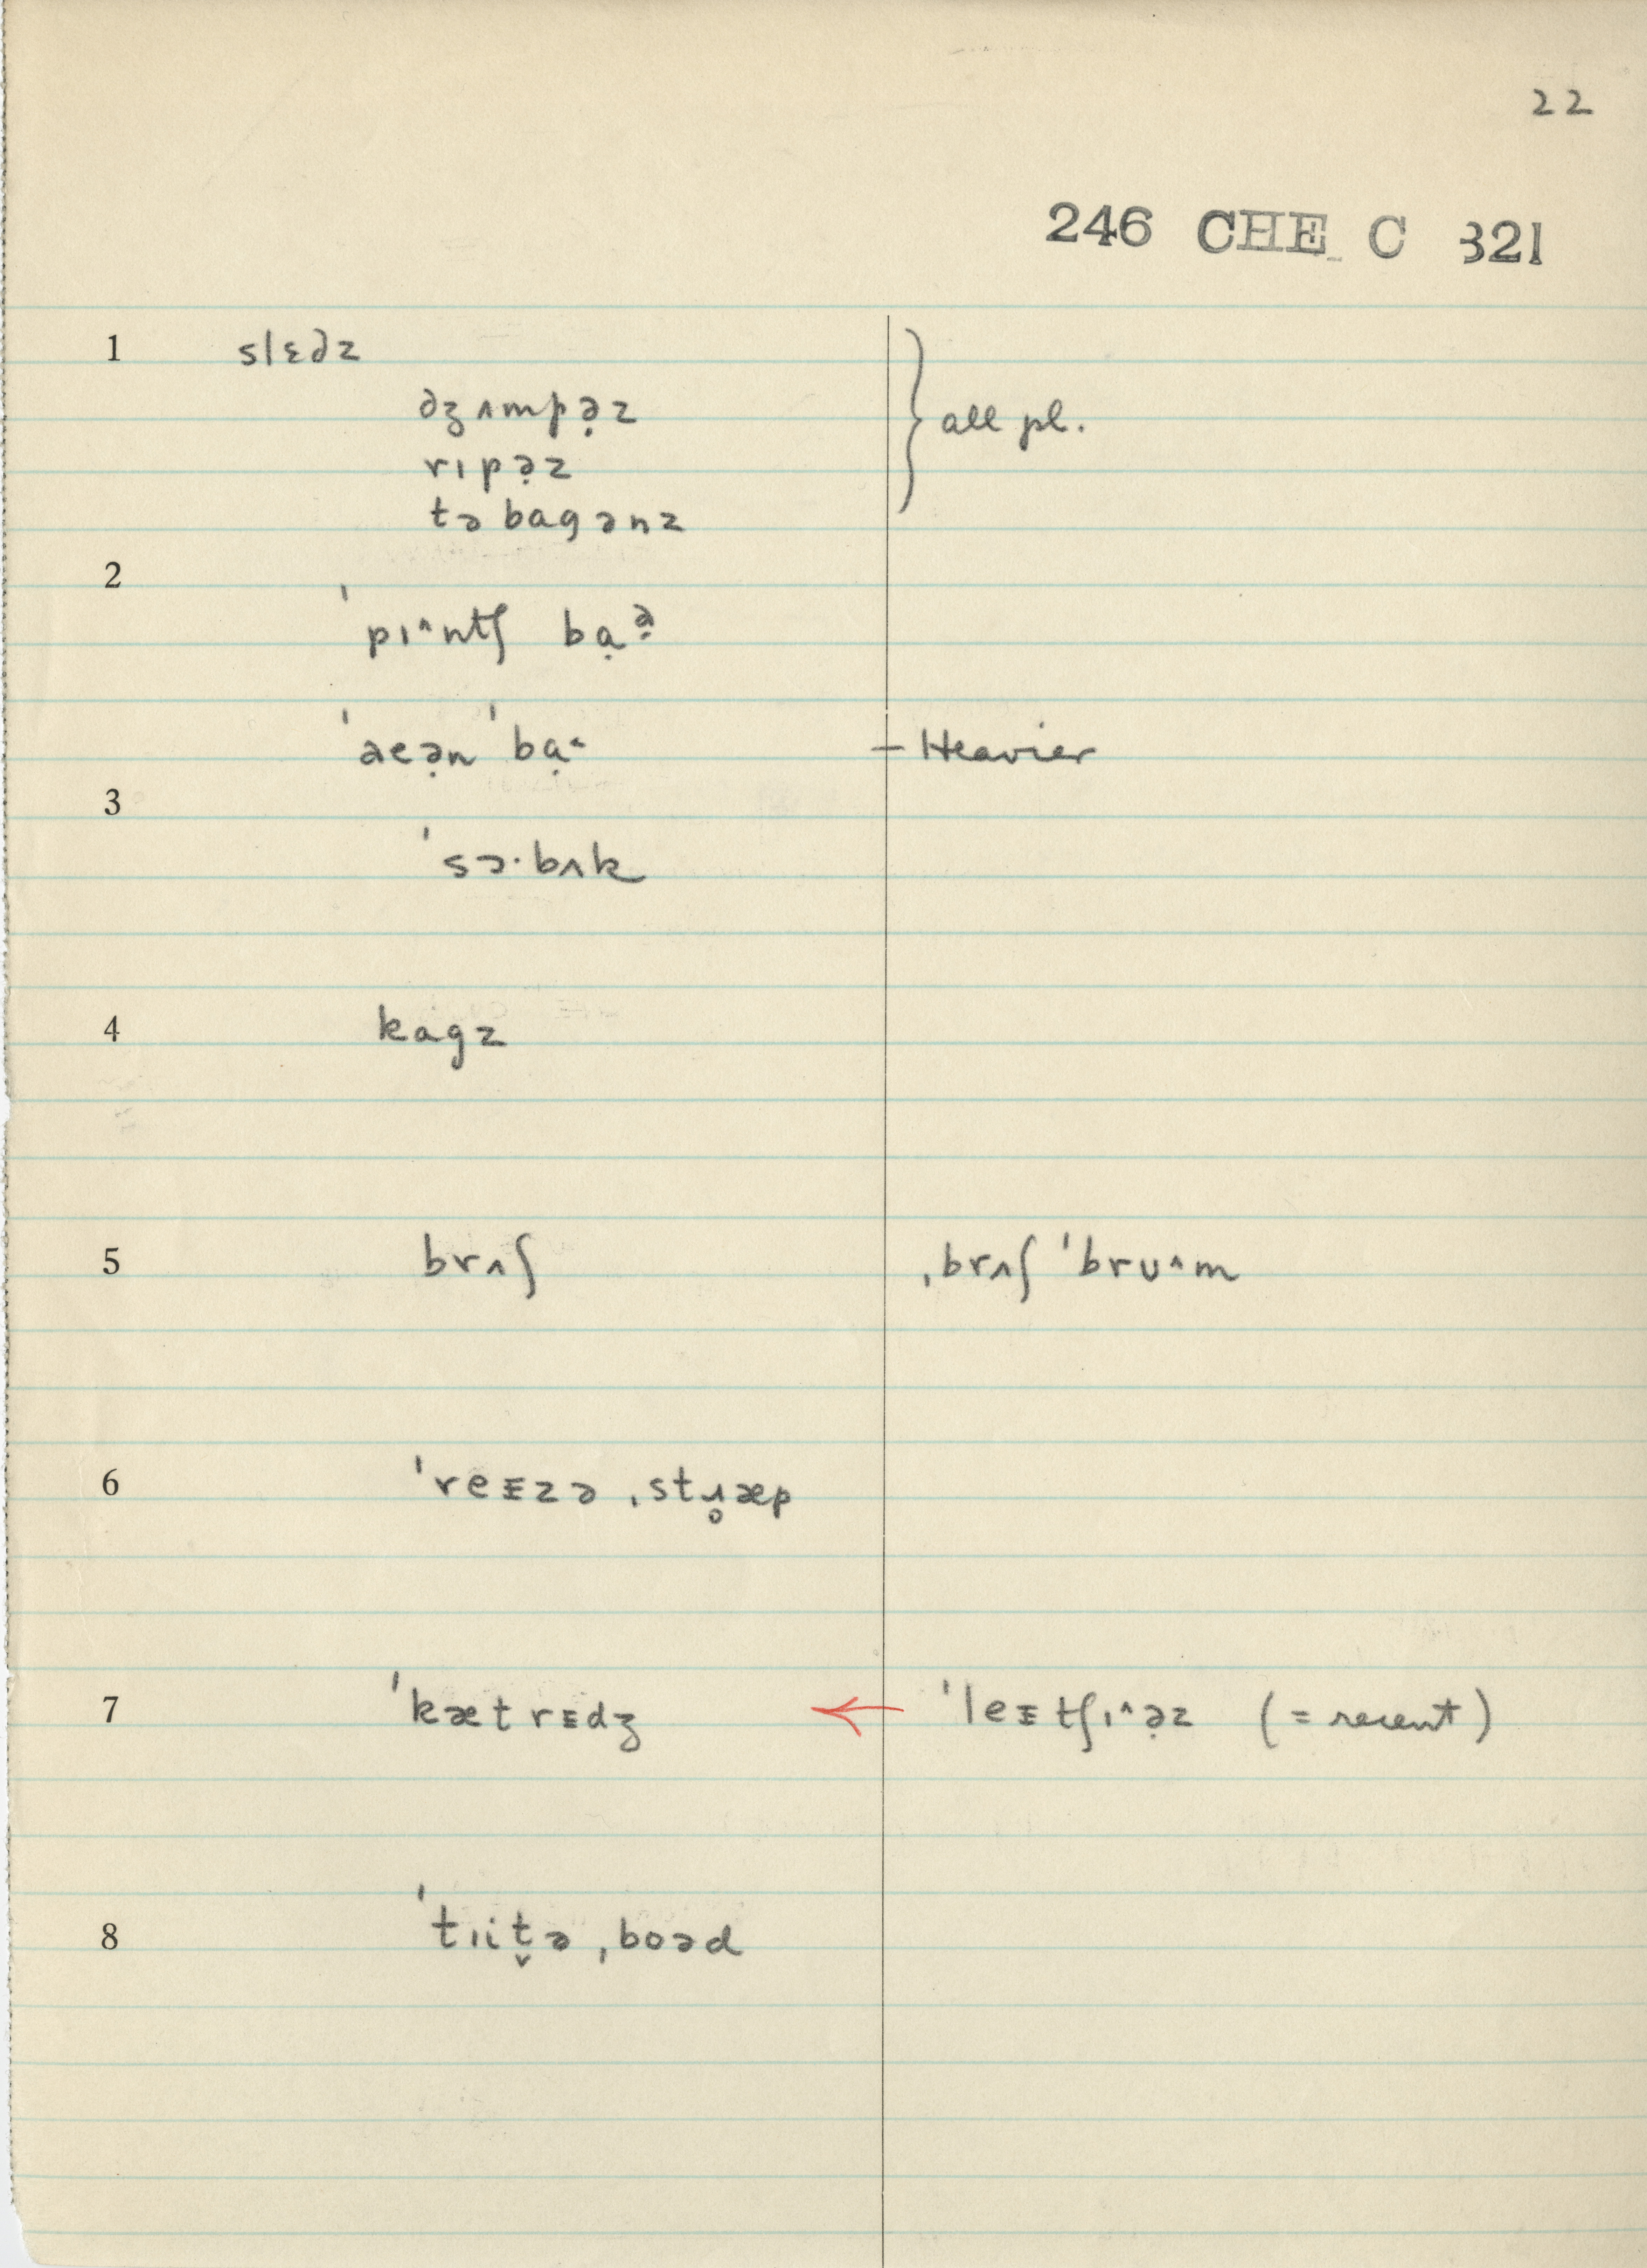 22
246 CHE C 321
1 slɛdz
dʒʌmpə̣z } all pl.
rɪpə̣z
təbagənz
2
ˈpɪ^ntʃ bạə̣
ˈaeə̣n ˈbạ˂ – Heavier
3
ˈsɔ·bʌk
4 kagz
5 brʌʃ ˌbrʌʃ ˈbrʊ^m
6 ˈreᵻzə ˌstɹ̥æp
7 ˈkætrᵻdʒ ← ˈleᵻtʃɪ^ə̣z (= recent)
8 ˈtɪit̬ə ˌboəd